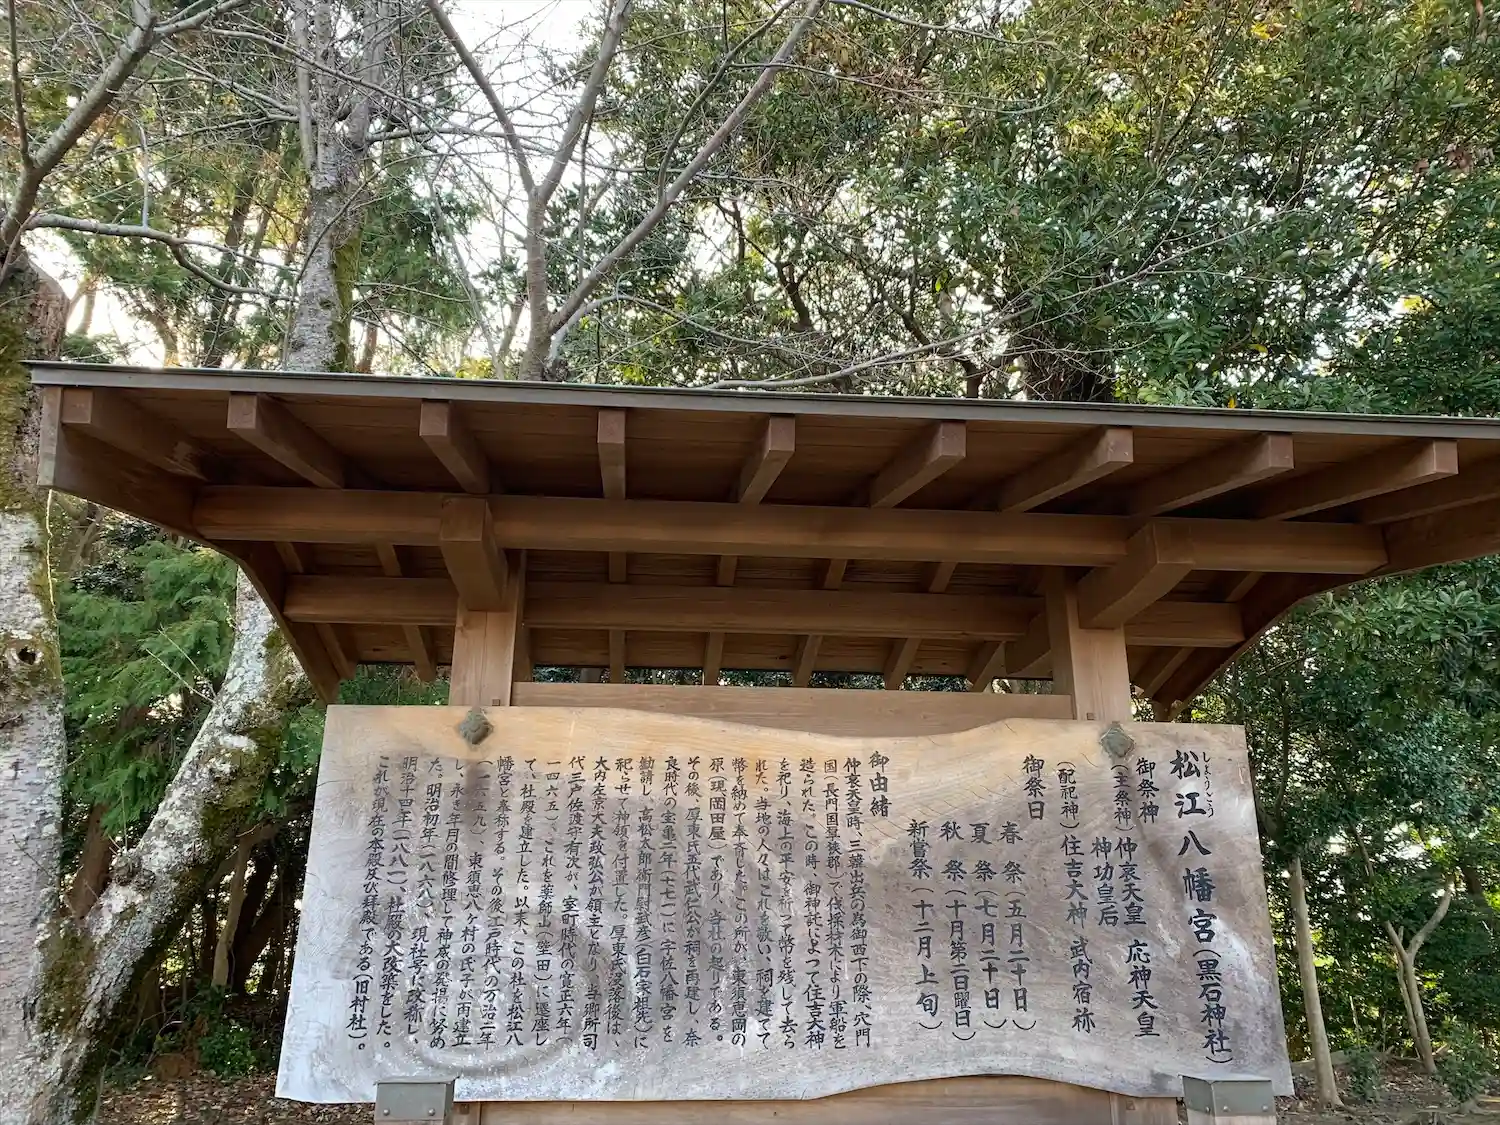 松江八幡宮(黒石神社)
御祭神
(主祭神)仲哀天皇 応神天皇
神功皇后
(配祀神)住吉大神 武内宿祢
御祭日
春祭(五月二十日)
夏祭(七月二十日)
秋祭(十月第二日曜日)
新嘗祭(十二月上旬)
御由緒
仲哀天皇時、三韓出兵の為御西下の際、穴門
国(長門国厚狭郡)で伐採楠木により軍船を
造られた。この時、御神託によって住吉大神
を祀り、海上の平安を祈って幣を残して去ら
れた。当地の人々はこれを敬い、祠を建てて
幣を納めて奉斎した。この所が、東須恵岡の
原(現岡田屋)であり、当社の起りである。
その後、厚東氏五代武仁公が祠を再建し、奈
良時代の宝亀二年(七七一)に宇佐八幡宮を
勧請し、高松太郎衛門尉武彦(白石家祖先)に
祀らせて神領を付置した。厚東氏没落後は、
大内左京大夫政弘公が領主となり、当郷所司
代三戸佐渡守有次が、室町時代の寛正六年(
一四六五)、これを薬師山(埜田)に遷座し
て、社殿を建立した。以来、この社を松江八
幡宮と奉称する。その後江戸時代の万治二年
(一六五九)、東須恵八ヶ村の氏子が再建立
し、永き年月の間修理して神威の発揚に努め
た。明治初年(一八六八)、現社号に改称し、
明治十四年(一八八一)、社殿の大改築をした。
これが現在の本殿及び拝殿である(旧村社)。